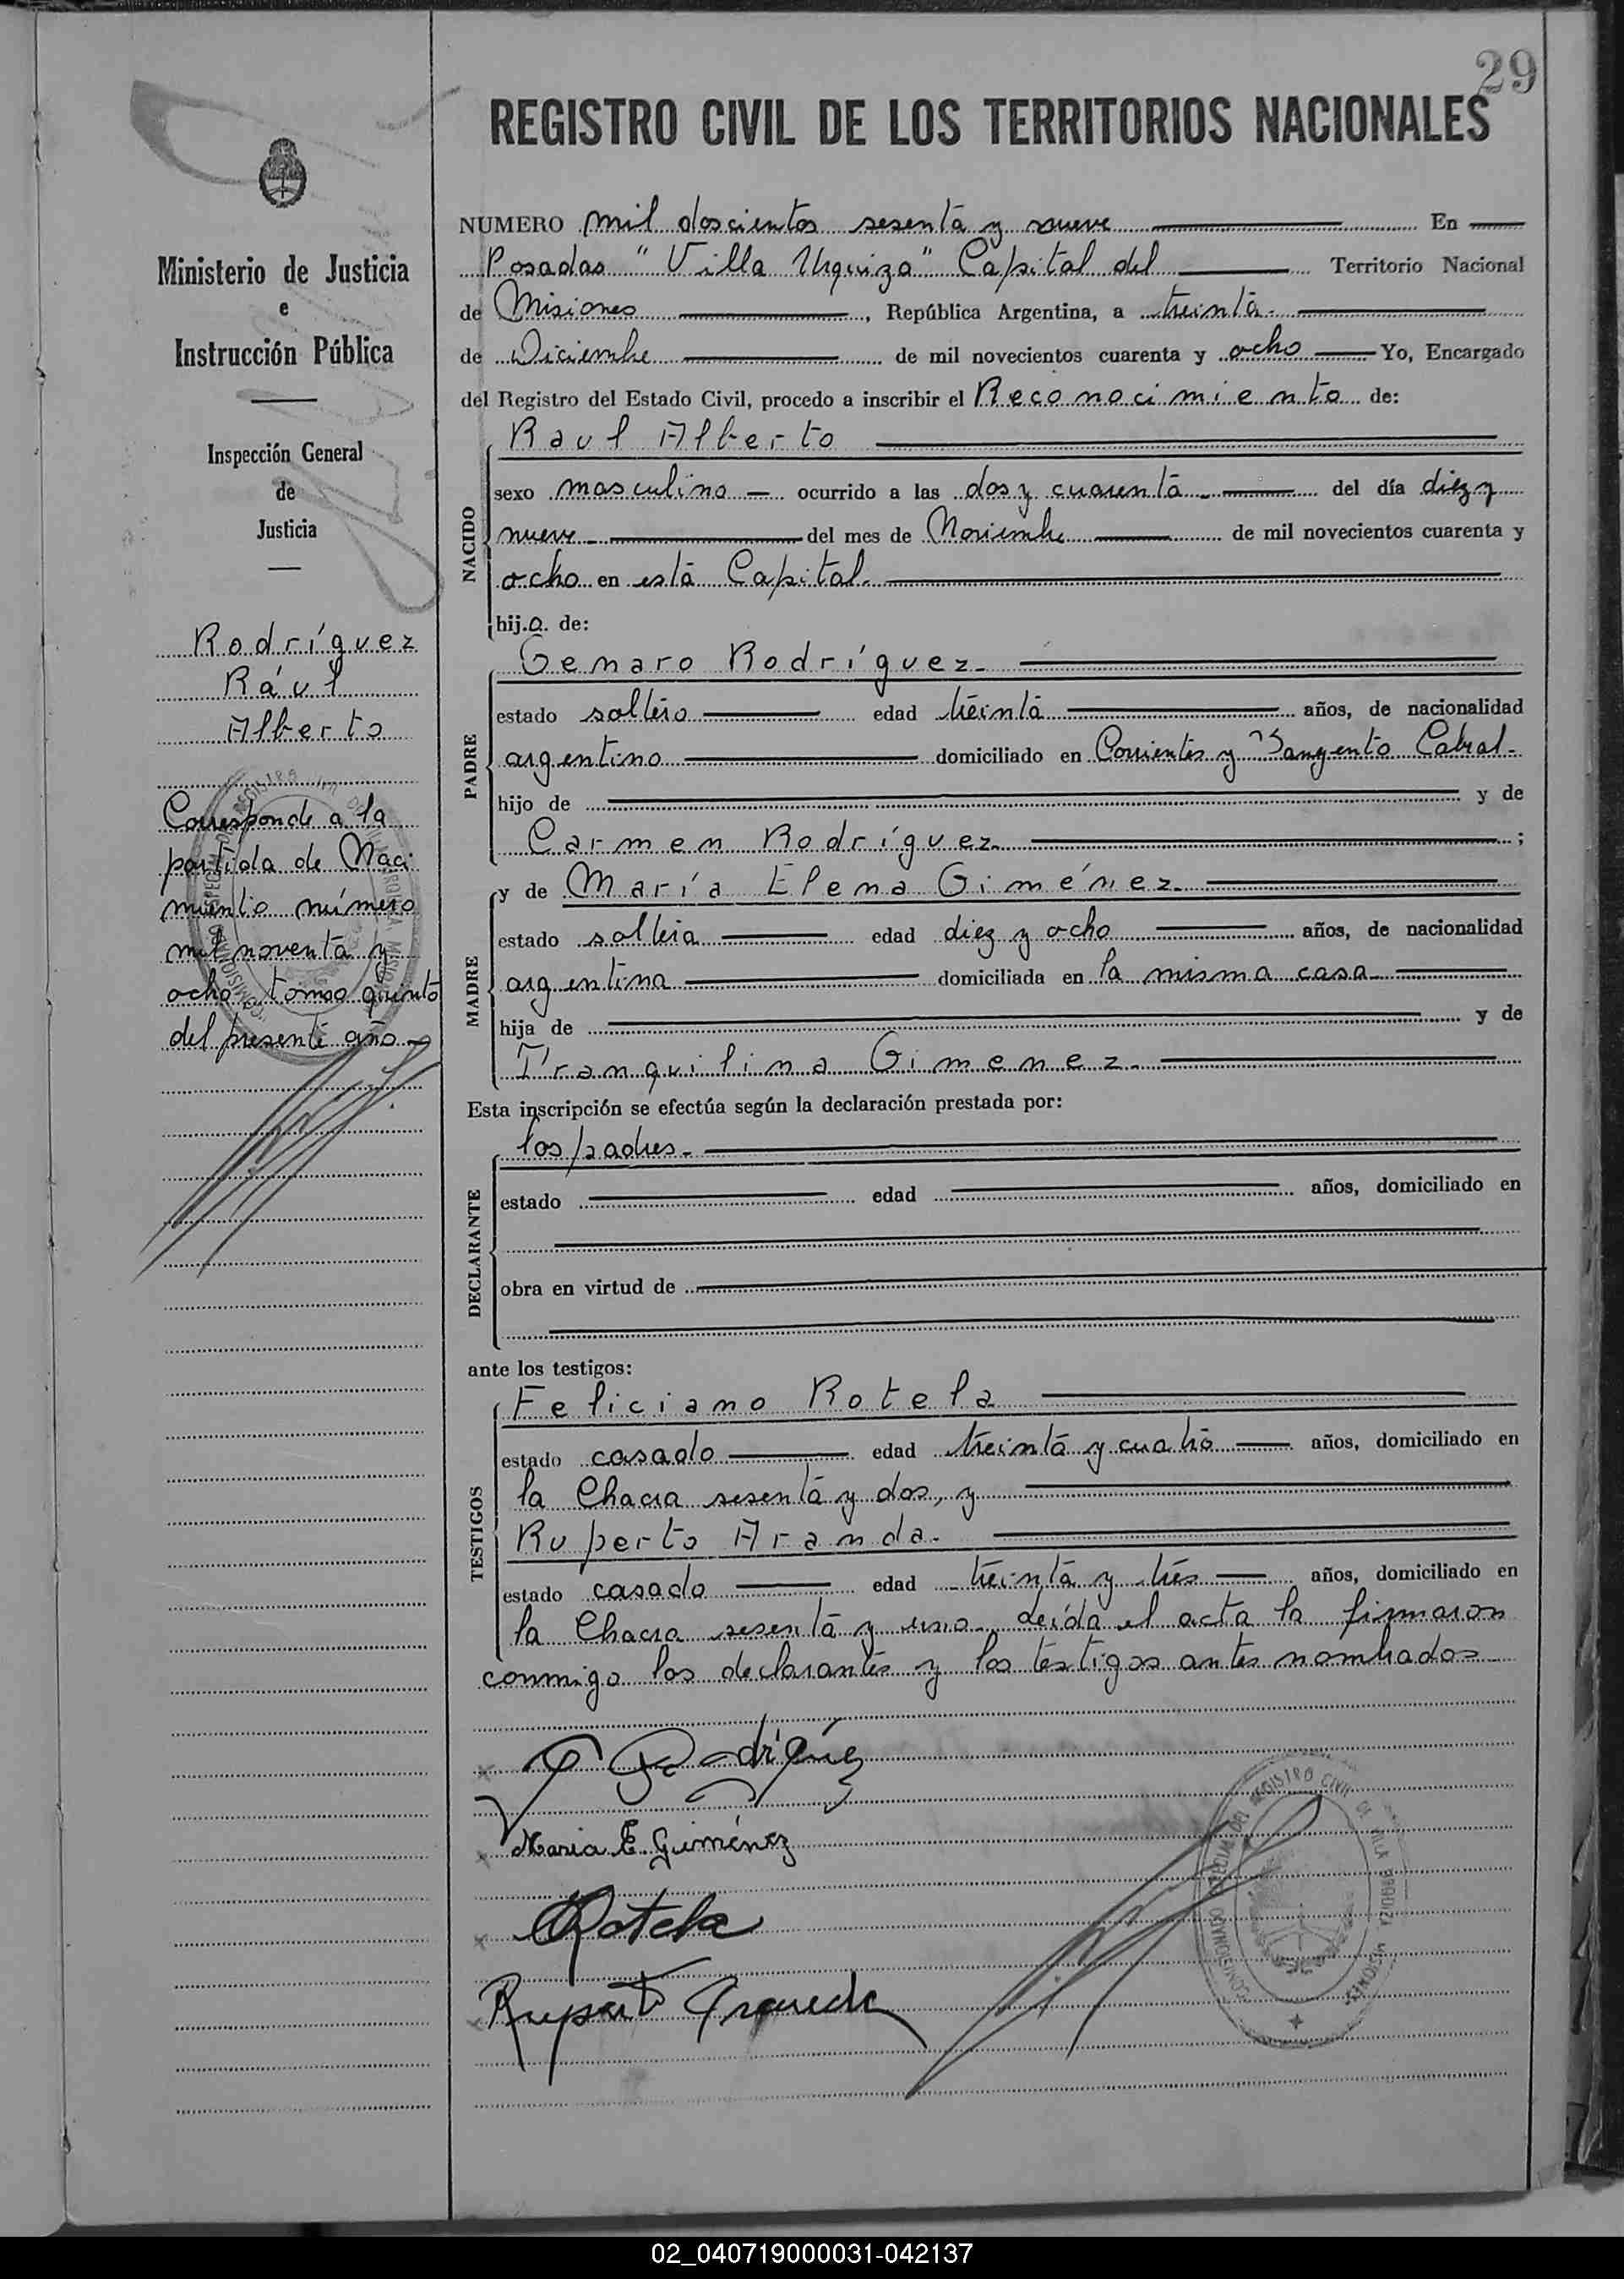 29
REGISTRO CIVIL DE LOS TERRITORIOS NACIONALES
Ministerio de Justicia
e
Instrucción Pública
Inspección General
de
Justicia
Rodríguez
Rául
Alberto
Corresponde a la
partida de Naci
miento número
mil noventa y
ocho tomo quinto
del presente año
NUMERO mil doscientos sesenta y nueve En
Posadas "Villa Urquiza" Capital del Territorio Nacional
de Misiones, República Argentina, a treinta
de Diciembre de mil novecientos cuarenta y ocho Yo, Encargado
del Registro del Estado Civil, procedo a inscribir el Reconocimiento de:
NACIDO
Raul Alberto
sexo masculino ocurrido a las dos y cuarenta del día diez y
nueve del mes de Noviembre de mil novecientos cuarenta y
ocho en esta Capital.
hijo de:
PADRE
Genaro Rodríguez
estado soltero edad treinta años, de nacionalidad
argentino domiciliado en Corrientes y Sargento Cabral
hijo de y de
Carmen Rodríguez ;
MADRE
y de María Elena Giménez
estado soltera edad diez y ocho años, de nacionalidad
argentina domiciliada en la misma casa
hija de y de
Tranquilina Gimenez
Esta inscripción se efectúa según la declaración prestada por:
DECLARANTE
los padres
estado edad años, domiciliado en
obra en virtud de
ante los testigos:
TESTIGOS
Feliciano Rotela
estado casado edad treinta y cuatro años, domiciliado en
la Chacra sesenta y dos, y
Ruperto Aranda.
estado casado edad treinta y tres años, domiciliado en
la Chacra sesenta y uno. Leída el acta la firmaron
conmigo los declarantes y los testigos antes nombrados
G Rodríguez
Maria E. Giménez
Rotela
Ruperto Aranda
COMISIONADO ESPECIAL DEL REGISTRO CIVIL DE VILLA URQUIZA MISIONES
02_040719000031-042137